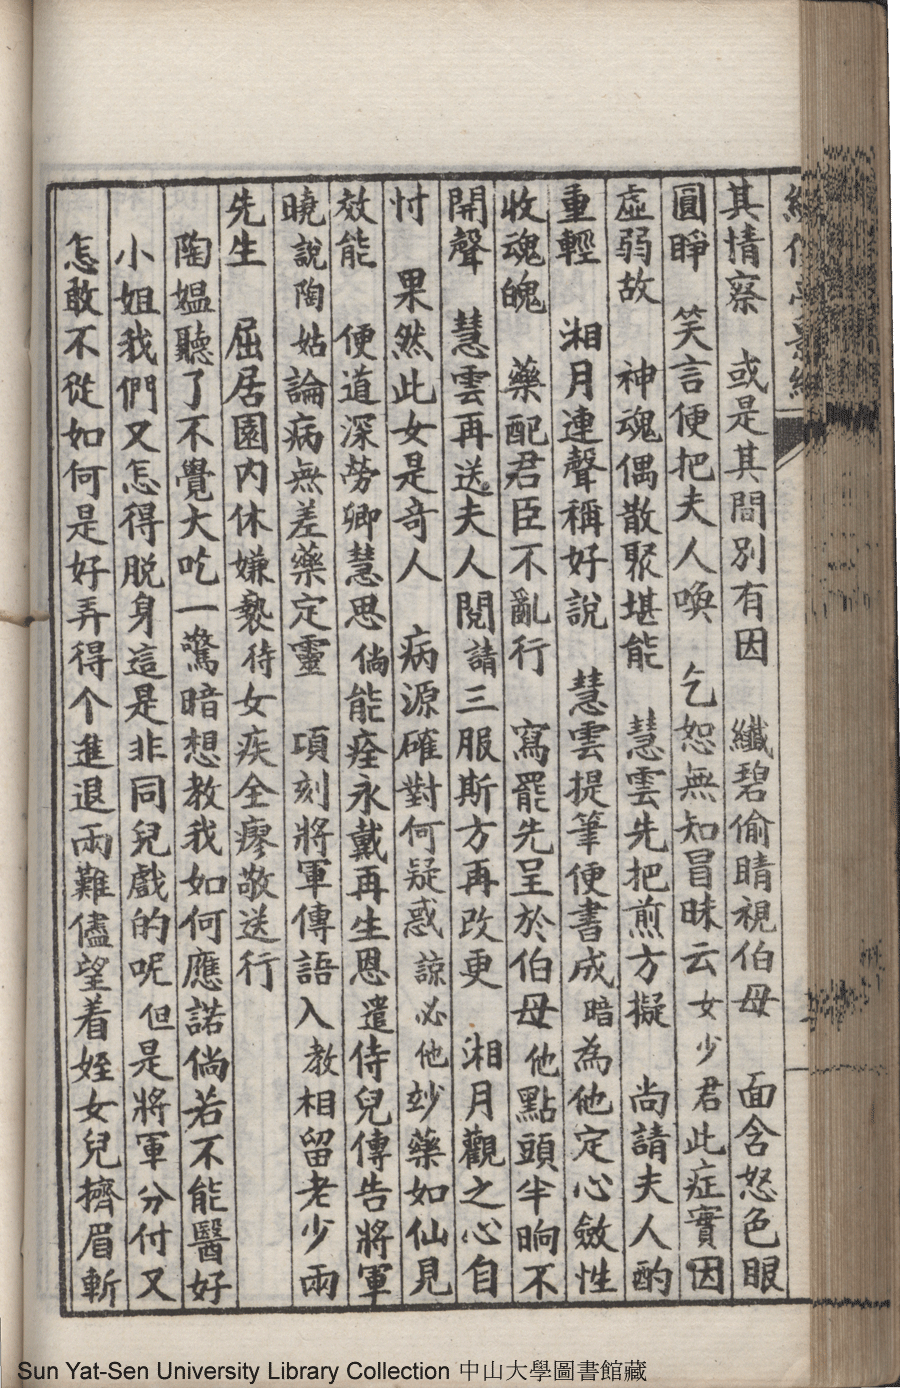 其情察　或是其間別有因　纖碧偷睛視伯母　面含怒色眼
圓睜　笑言便把夫人喚　乞恕無知冒昧云　女少君此症實因
虛弱故　神魂偶散聚堪能　慧雲先把煎方擬　尚請夫人酌
重輕　湘月連聲稱好說　慧雲提筆便書成　暗為他定心斂性
收魂魄　藥配君臣不亂行　寫罷先呈於伯母　他點頭半晌不
開聲　慧雲再送夫人閱　請三服斯方再改更　湘月觀之心自
忖　果然此女是奇人　病源確對何疑惑　諒必他玅藥如仙見
效能　便道深勞卿慧思　倘能痊永戴再生恩　遣侍兒傳告將軍
曉　說陶姑論病無差藥定靈　項刻將軍傳語入　教相留老少兩
先生　屈居園內休嫌褻　待女疾全瘳敬送行
陶媼聽了不覺大吃一驚暗想教我如何應諾倘若不能醫好
小姐我們又怎得脫身這是非同兒戲的呢但是將軍分付又
怎敢不從如何是好弄得个進退兩難儘望着姪女兒擠眉斬
Sun Yat-Sen University Library Collection 中山大學圖書館藏